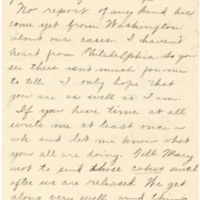 No report of any kind has
come yet from Washington
about our cases. I haven't
heard from Philadelphia so you
see there isn't much for me
to tell. I only hope that
you are as well as I am.
If you have time at all
write me at least once a
wk and let me know what
you all are doing. Tell Mary
not to send those cakes until
after we are released. We get
along very well and things